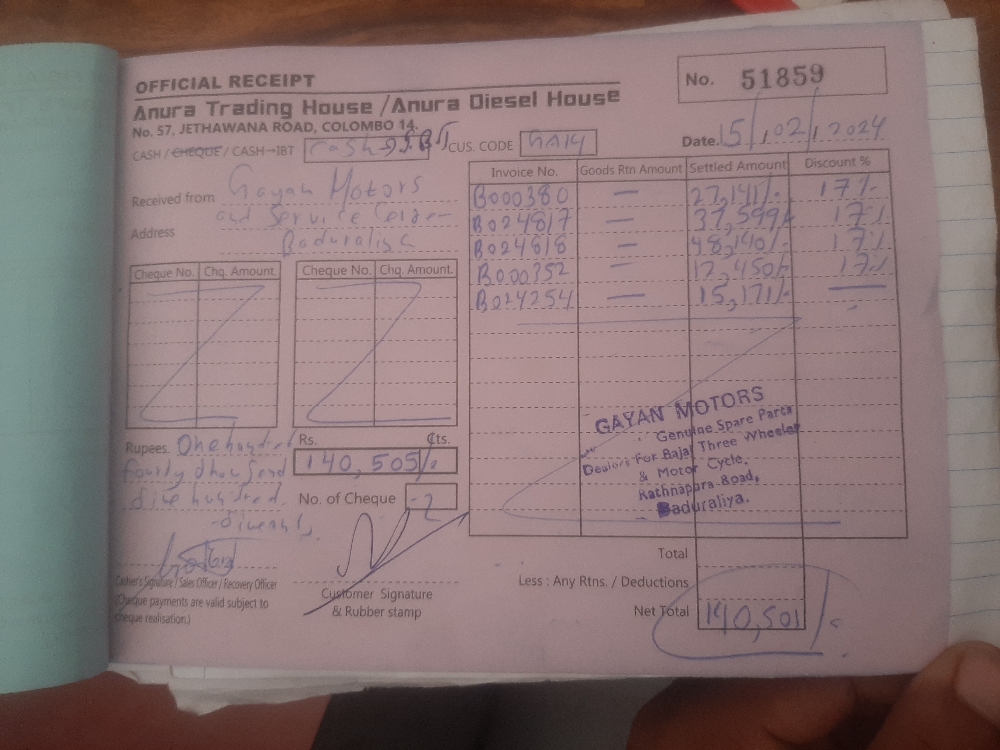 OFFICIAL RECEIPT
No. 51859
Anura Trading House / Anura Diesel House
No. 57, JETHAWANA ROAD, COLOMBO 14.
Date. 15/02/2024
CASH / CHEQUE / CASH→IBT Cash→
CUS. CODE GA14
Received from Gayan Motors
and Service
Address Baduraliya
Invoice No. Goods Rtn Amount Settled Amount Discount %
B000380 — 27,141/- 17%
B024817 — 37,599/- 17%
B024818 — 48,140/- 17%
B000352 — 12,450/- 17%
B024254 — 15,171/- —
Cheque No. Chq. Amount Cheque No. Chq. Amount.
GAYAN MOTORS
Genuine Spare Parts
Dealers For Bajaj Three Wheeler
& Motor Cycle.
Rathnapura Road,
Baduraliya.
Rupees. One hundred
Rs. Cts.
140,505/-
No. of Cheque
Cashier's Signature / Sales Officer / Recovery Officer
(Cheque payments are valid subject to
cheque realisation.)
Customer Signature
& Rubber stamp
Total
Less : Any Rtns. / Deductions
Net Total 140,501/-